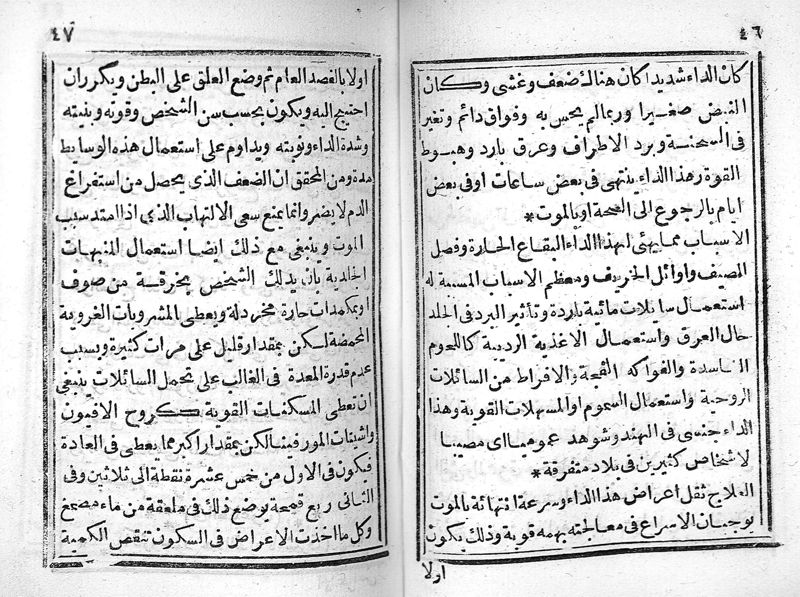 ٤٦
كان الداء شديدا كان هناك ضعف وغشى وكان
النبض صغيرا وربما لم يحس به وفواق دائم وتغير
فى السحنة وبرد الاطراف وعرق بارد وهبوط
القوة وهذا الداء ينتهى فى بعض ساعات او فى بعض
ايام بالرجوع الى الصحة او بالموت *
الاسباب مما يهئى لهذا الداء البقاع الحارة وفصل
الصيف واوائل الخريف ومعظم الاسباب المسببة له
استعمال سائلات مائية باردة وتأثير البرد فى الجلد
حال العرق واستعمال الاغذية الرديئة كاللحوم
الفاسدة والفواكه الفجة والافراط من السائلات
الروحية واستعمال السموم او المسهلات القوية وهذا
الداء جنسى فى الهند وشوهد عموميا اى مصيبا
لاشخاص كثيرين فى بلاد متفرقة *
العلاج ثقل اعراض هذا الداء وسرعة انتهائه بالموت
يوجبان الاسراع فى معالجته بهمه قوية وذلك يكون
اولا
٤٧
اولا بالفصد العام ثم وضع العلق على البطن ويكرران
احتيج اليه ويكون بحسب سن الشخص وقوته وبنيته
وشدة الداء ونوبته ويداوم على استعمال هذه الوسايط
مدة ومن المحقق ان الضعف الذى يحصل من استفراغ
الدم لا يضر وانما يمنع سعى الالتهاب الذى اذا امتد سبب
الموت وينبغى مع ذلك ايضا استعمال المنبهات
الجلدية بان يدلك الشخص بخرقة من صوف
او بمكمدات حارة مخردلة ويعطى المشروبات الغروية
المحمضة لكن بمقدار قليل على مرات كثيرة وبسبب
عدم قدرة المعدة فى الغالب على تحمل السائلات ينبغى
ان تعطى المسكنات القوية كروح الافيون
واشيتات المورفينا لكن بمقدار اكبر مما يعطى فى العادة
فيكون فى الاول من خمس عشرة نقطة الى ثلاثين وفى
الثانى ربع قمحة يوضع ذلك فى ملعقة من ماء مصمغ
وكل ما اخذت الاعراض فى السكون تنقص الكمية